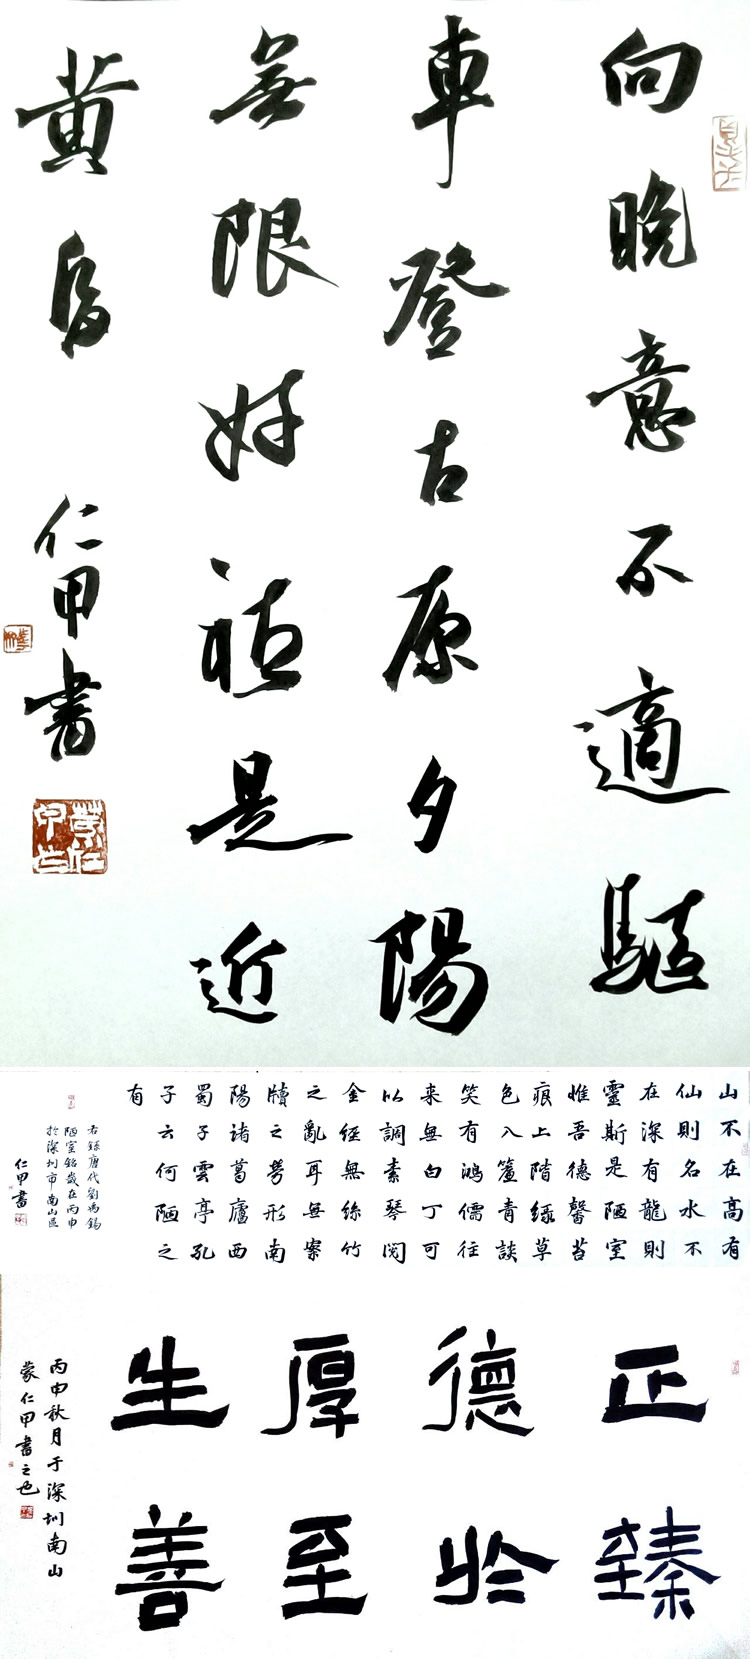 向晚意不適驅
車登古原夕陽
無限好祗是近
黃昏
仁甲書
蒙仁甲印
山不在高有
仙則名水不
在深有龍則
靈斯是陋室
惟吾德馨苔
痕上階綠草
色入簾青談
笑有鴻儒往
来無白丁可
以調素琴閱
金經無絲竹
之亂耳無案
牘之勞形南
陽諸葛廬西
蜀子雲亭孔
子云何陋之
有
右錄唐代劉禹錫
陋室銘歲在丙申
於深圳市南山區
仁甲書
正德厚生
臻於至善
丙申秋月于深圳南山
蒙仁甲書之也